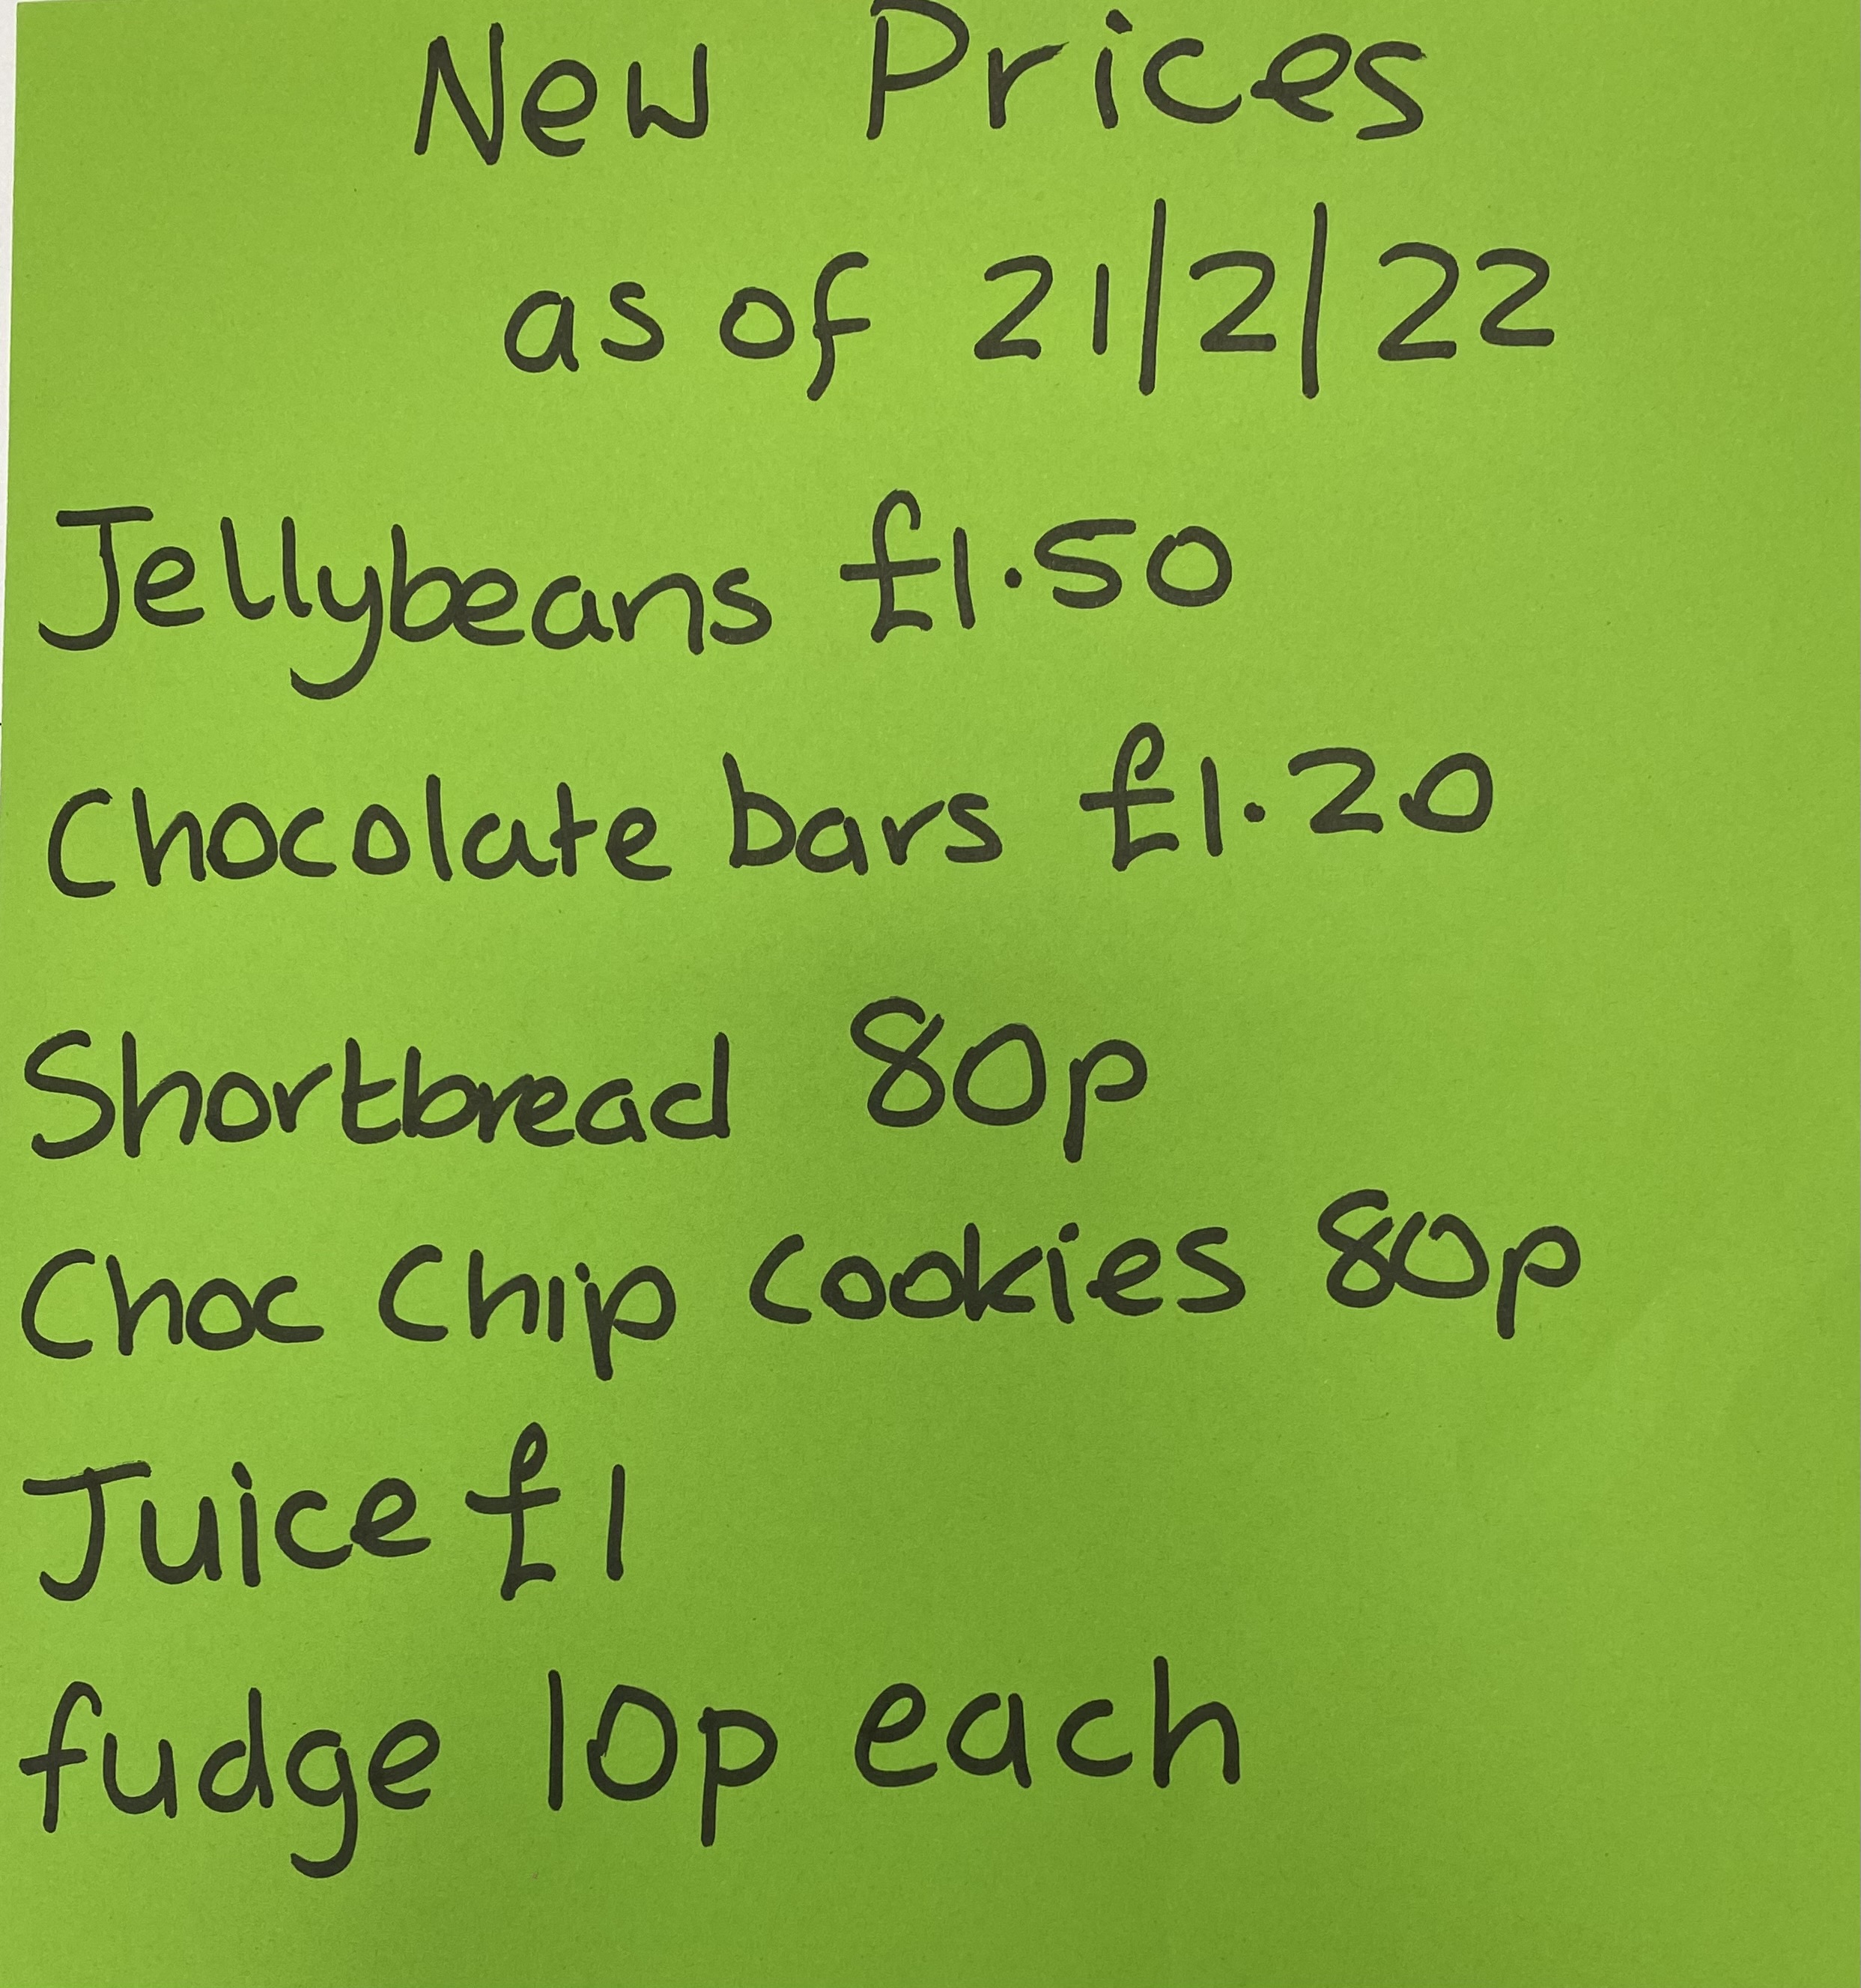 New Prices
as of 21/2/22
Jellybeans £1.50
Chocolate bars £1.20
Shortbread 80p
Choc Chip Cookies 80p
Juice £1
fudge 10p each